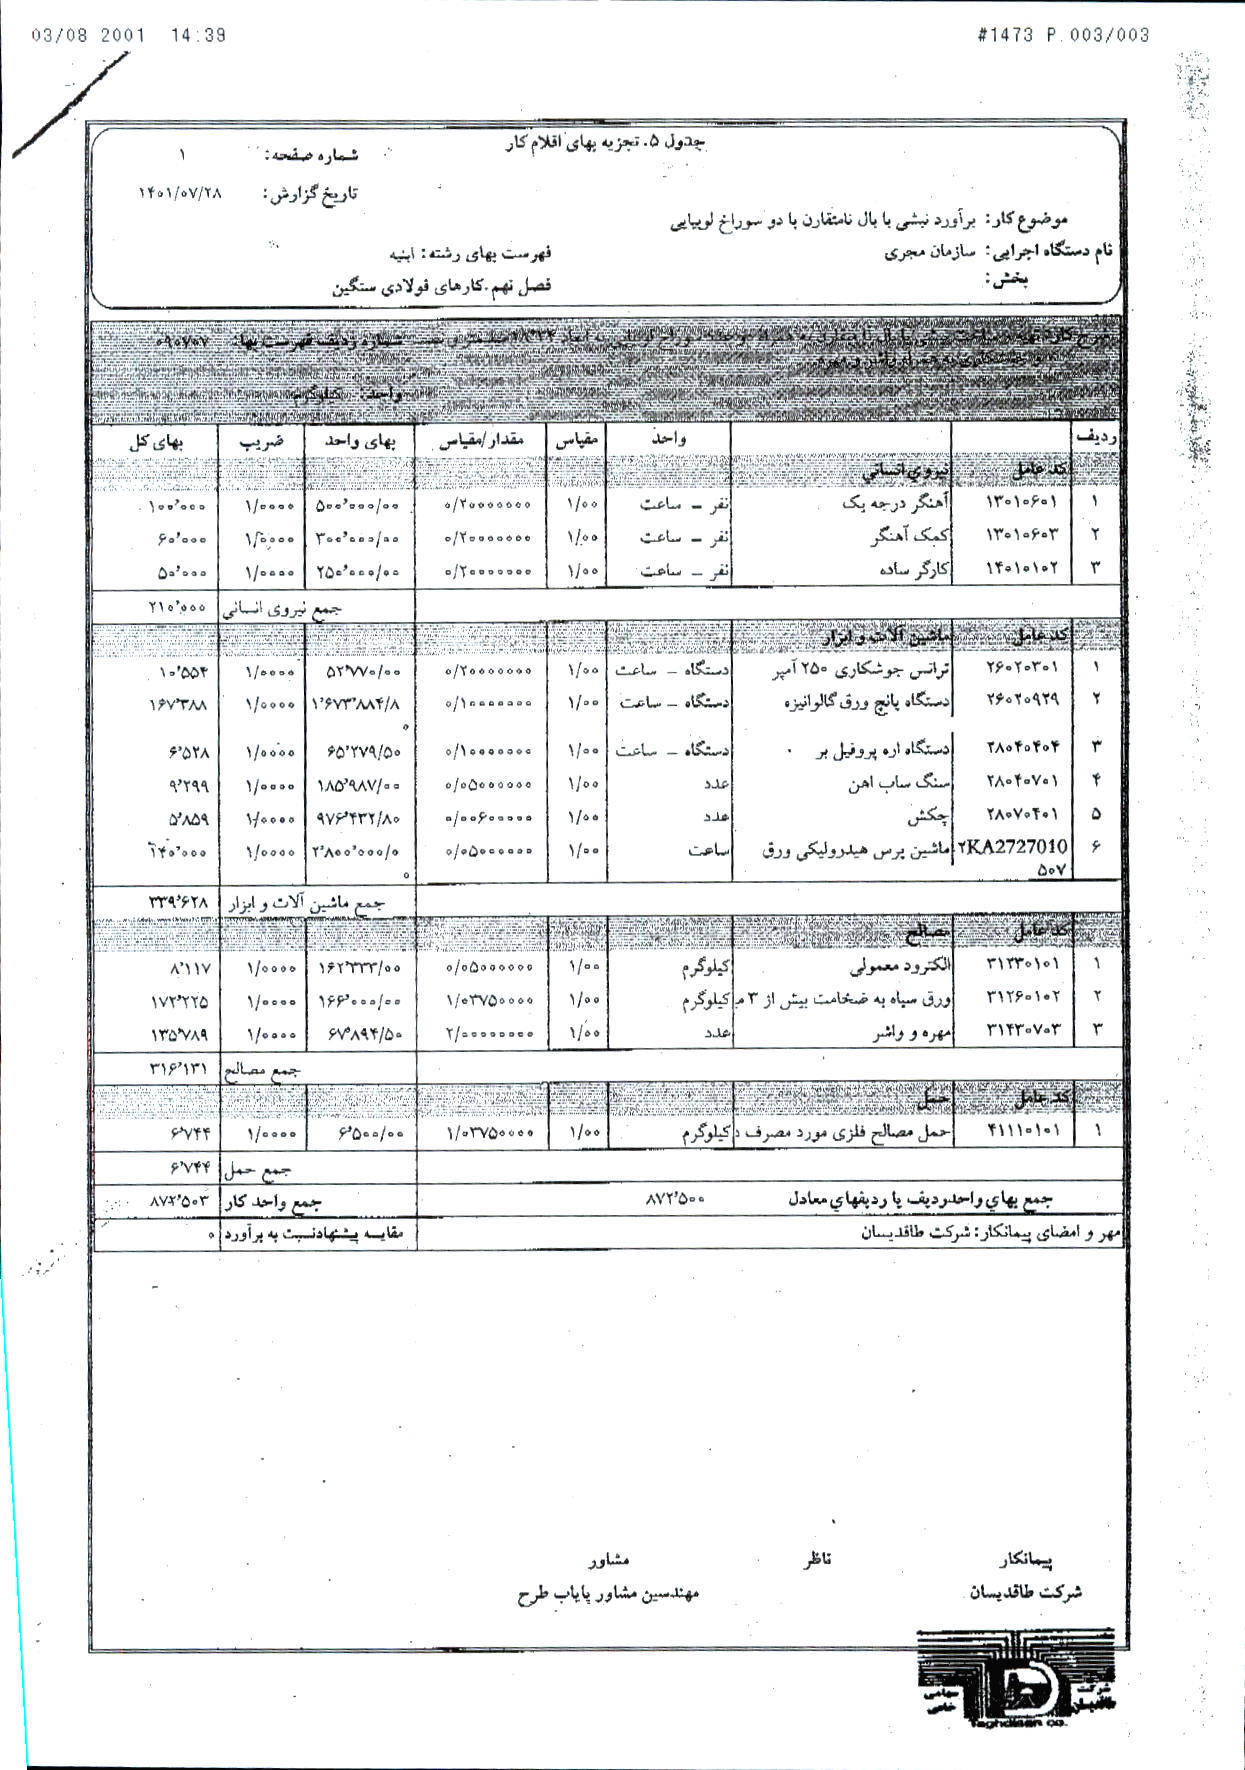 03/08 2001 14:39 #1473 P.003/003
جدول ۵. تجزیه بهای اقلام کار
شماره صفحه: ۱
تاریخ گزارش: ۱۴۰۱/۰۷/۲۸
موضوع کار: برآورد نبشی با بال نامتقارن با دو سوراخ لوبیایی
نام دستگاه اجرایی: سازمان مجری فهرست بهای رشته: ابنیه
بخش: فصل نهم.کارهای فولادی سنگین
شماره ردیف فهرست بها: ۰۹۰۷۰۷
واحد: کیلوگرم
ردیف واحد مقیاس مقدار/مقیاس بهای واحد ضریب بهای کل
کد عامل نیروی انسانی
۱ ۱۳۰۱۰۶۰۱ آهنگر درجه یک نفر - ساعت ۱/۰۰ ۰/۲۰۰۰۰۰۰۰ ۵۰۰٬۰۰۰/۰۰ ۱/۰۰۰۰ ۱۰۰٬۰۰۰
۲ ۱۳۰۱۰۶۰۳ کمک آهنگر نفر - ساعت ۱/۰۰ ۰/۲۰۰۰۰۰۰۰ ۳۰۰٬۰۰۰/۰۰ ۱/۰۰۰۰ ۶۰٬۰۰۰
۳ ۱۴۰۱۰۱۰۲ کارگر ساده نفر - ساعت ۱/۰۰ ۰/۲۰۰۰۰۰۰۰ ۲۵۰٬۰۰۰/۰۰ ۱/۰۰۰۰ ۵۰٬۰۰۰
جمع نیروی انسانی ۲۱۰٬۰۰۰
کد عامل ماشین آلات و ابزار
۱ ۲۶۰۲۰۳۰۱ ترانس جوشکاری ۲۵۰ آمپر دستگاه - ساعت ۱/۰۰ ۰/۲۰۰۰۰۰۰۰ ۵۲٬۷۷۰/۰۰ ۱/۰۰۰۰ ۱۰٬۵۵۴
۲ ۲۶۰۲۰۹۲۹ دستگاه پانچ ورق گالوانیزه دستگاه - ساعت ۱/۰۰ ۰/۱۰۰۰۰۰۰۰ ۱٬۶۷۳٬۸۸۴/۸۰ ۱/۰۰۰۰ ۱۶۷٬۳۸۸
۳ ۲۸۰۴۰۴۰۴ دستگاه اره پروفیل بر دستگاه - ساعت ۱/۰۰ ۰/۱۰۰۰۰۰۰۰ ۶۵٬۲۷۹/۵۰ ۱/۰۰۰۰ ۶٬۵۲۸
۴ ۲۸۰۴۰۷۰۱ سنگ ساب اهن عدد ۱/۰۰ ۰/۰۵۰۰۰۰۰۰ ۱۸۵٬۹۸۷/۰۰ ۱/۰۰۰۰ ۹٬۲۹۹
۵ ۲۸۰۷۰۴۰۱ چکش عدد ۱/۰۰ ۰/۰۰۶۰۰۰۰۰ ۹۷۶٬۴۳۲/۸۰ ۱/۰۰۰۰ ۵٬۸۵۹
۶ ۲KA2727010۵۰۷ ماشین پرس هیدرولیکی ورق ساعت ۱/۰۰ ۰/۰۵۰۰۰۰۰۰ ۲٬۸۰۰٬۰۰۰/۰۰ ۱/۰۰۰۰ ۱۴۰٬۰۰۰
جمع ماشین آلات و ابزار ۳۳۹٬۶۲۸
کد عامل مصالح
۱ ۳۱۲۳۰۱۰۱ الکترود معمولی کیلوگرم ۱/۰۰ ۰/۰۵۰۰۰۰۰۰ ۱۶۲٬۳۳۳/۰۰ ۱/۰۰۰۰ ۸٬۱۱۷
۲ ۳۱۲۶۰۱۰۲ ورق سیاه به ضخامت بیش از ۳ م کیلوگرم ۱/۰۰ ۱/۰۳۷۵۰۰۰۰ ۱۶۶٬۰۰۰/۰۰ ۱/۰۰۰۰ ۱۷۲٬۲۲۵
۳ ۳۱۴۳۰۷۰۳ مهره و واشر عدد ۱/۰۰ ۲/۰۰۰۰۰۰۰۰ ۶۷٬۸۹۴/۵۰ ۱/۰۰۰۰ ۱۳۵٬۷۸۹
جمع مصالح ۳۱۶٬۱۳۱
کد عامل حمل
۱ ۴۱۱۱۰۱۰۱ حمل مصالح فلزی مورد مصرف د کیلوگرم ۱/۰۰ ۱/۰۳۷۵۰۰۰۰ ۶٬۵۰۰/۰۰ ۱/۰۰۰۰ ۶٬۷۴۴
جمع حمل ۶٬۷۴۴
جمع بهای واحدردیف یا ردیفهای معادل ۸۷۲٬۵۰۰ جمع واحد کار ۸۷۲٬۵۰۳
مهر و امضای پیمانکار: شرکت طاقدیسان مقایسه پیشنهادنسبت به برآورد ۰
پیمانکار ناظر مشاور
شرکت طاقدیسان مهندسین مشاور پایاب طرح
شرکت طاقدیسان سهامی خاص
Taghdisan co.